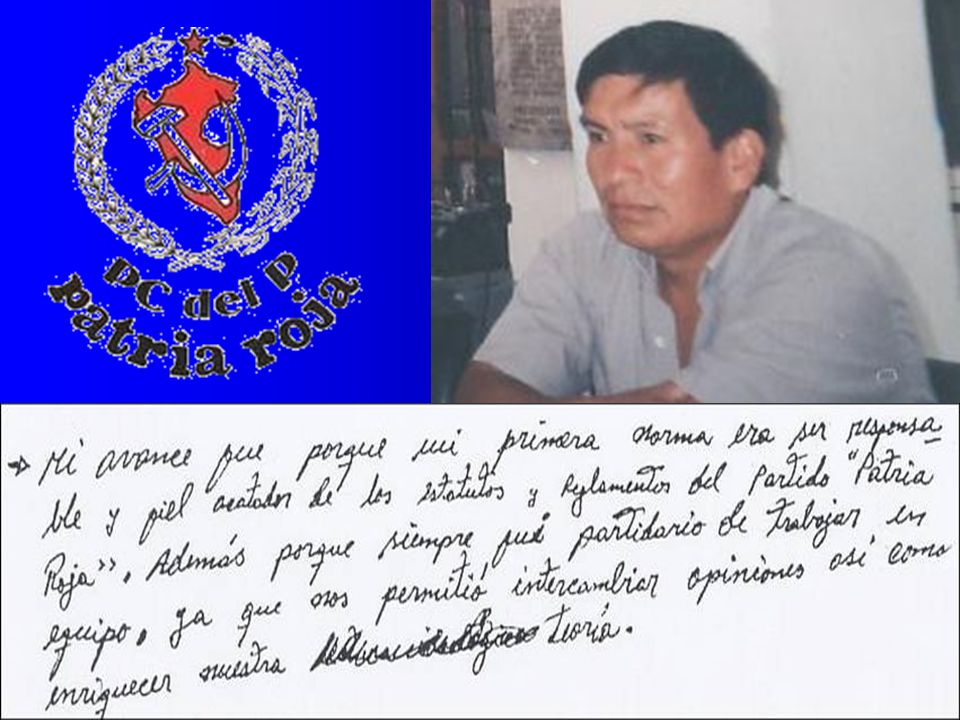 PC del P
patria roja
→ Mi avance fue porque mi primera norma era ser responsa
ble y fiel acatador de los Estatutos y Reglamentos del Partido "Patria
Roja". Además porque siempre fui partidario de trabajar en
equipo. Ya que nos permitió intercambiar opiniones así como
enriquecer nuestra teoría.